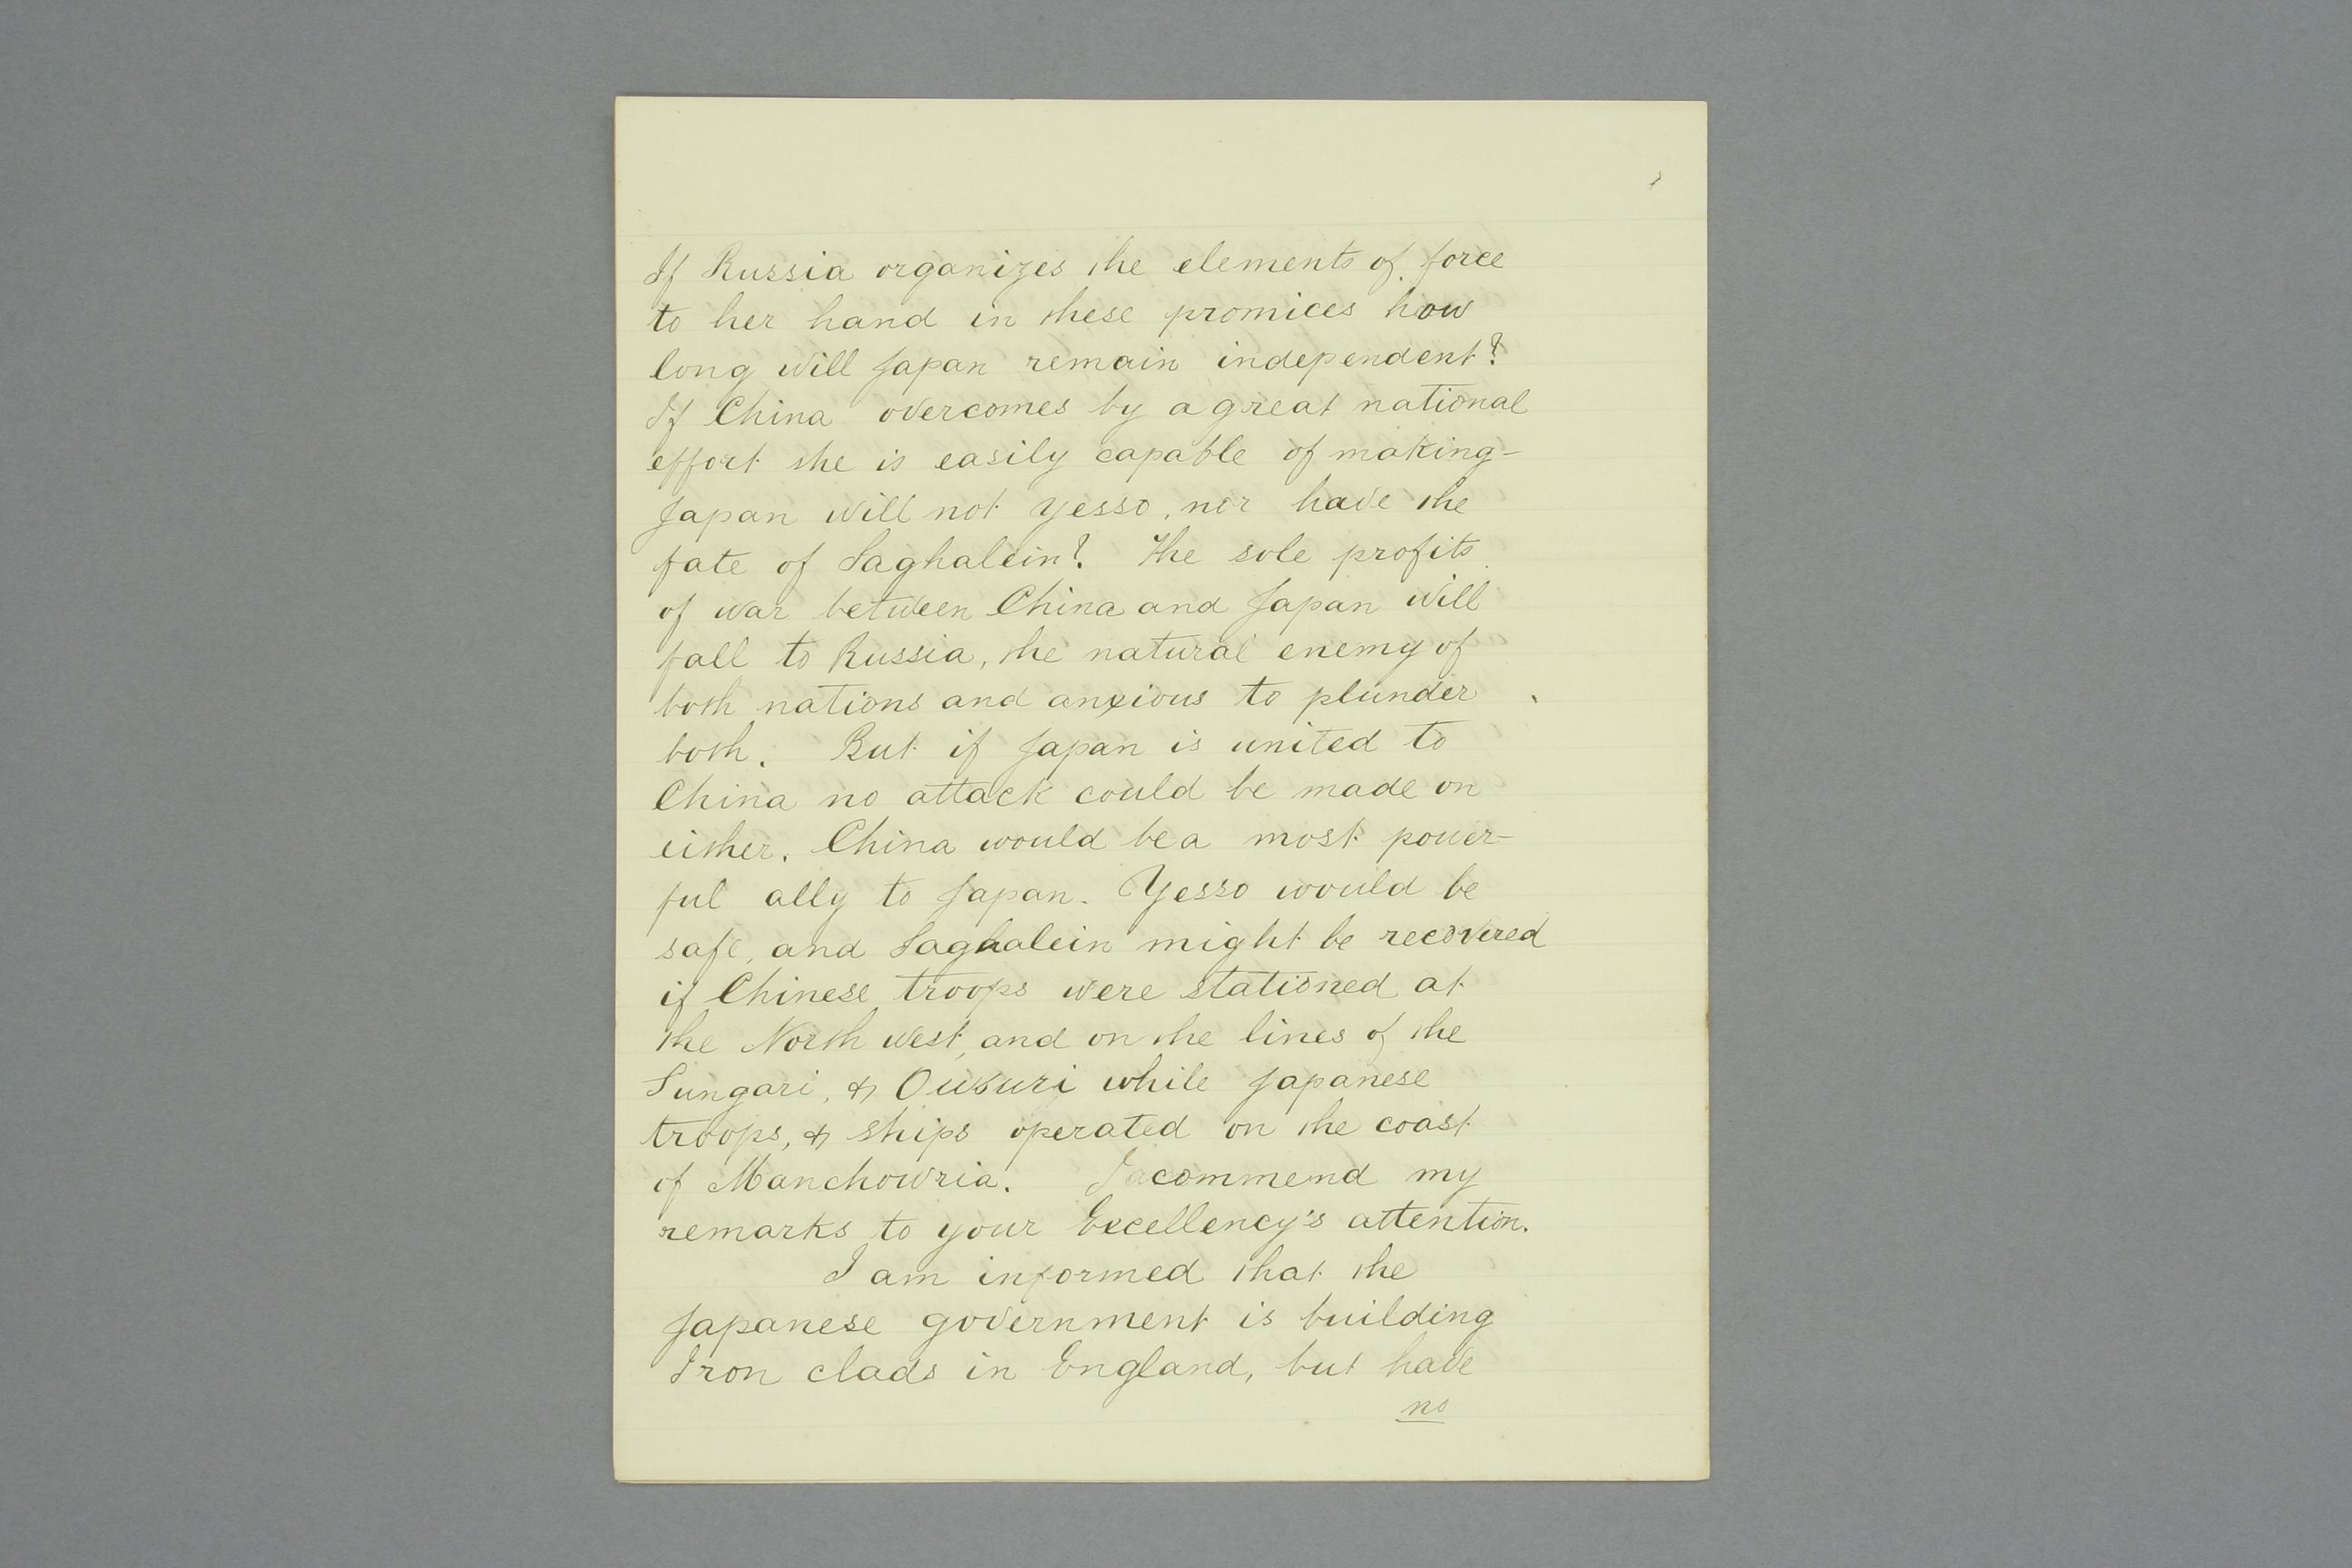 If Russia organizes the elements of force
to her hand in these promices how
long will Japan remain independent?
If China overcomes by a great national
effort she is easily capable of making-
Japan will not Yesso, nor have the
fate of Saghalein? The sole profits
of war between China and Japan will
fall to Russia, the natural enemy of
both nations and anxious to plunder
both. But if Japan is united to
China no attack could be made on
either. China would be a most power-
ful ally to Japan. Yesso would be
safe, and Saghalein might be recovered
if Chinese troops were stationed at
the North west, and on the lines of the
Sungari, & Ousuri while Japanese
troops, & ships operated on the coast
of Manchowria. I acommend my
remarks to your Excellency's attention.
I am informed that the
Japanese government is building
Iron clads in England, but have
no